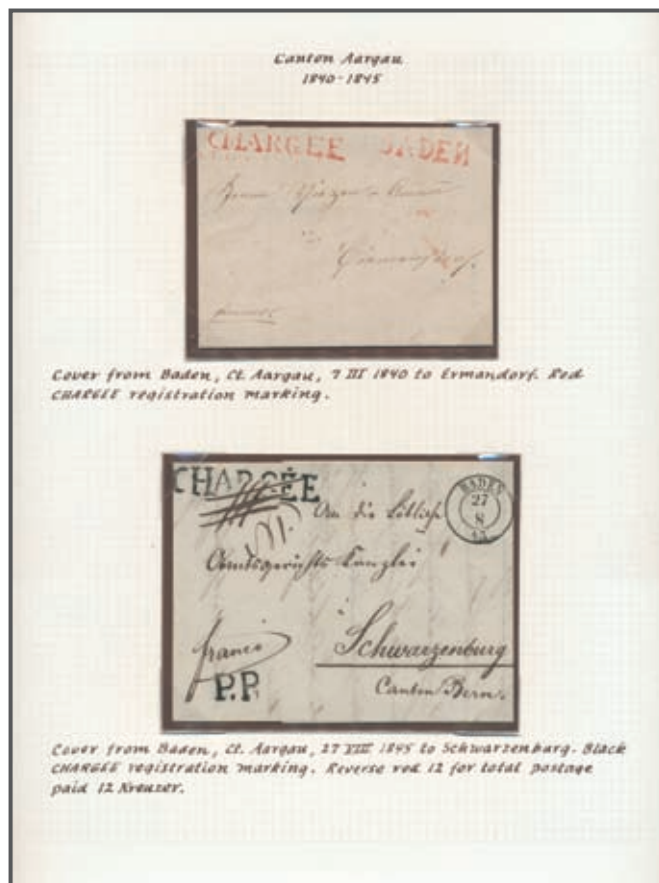 Canton Aargau
1840-1845
CHARGEE BADEN
Cover from Baden, Ct. Aargau, 7 III 1840 to Ermandorf. Red
CHARGEE registration marking.
CHARGÉE
BADEN
27
8
45
An die Löbliche
Amtsgerichts Kanzlei
à
Schwarzenburg
Canton Bern.
franco
P.P.
Cover from Baden, Ct. Aargau, 27 VIII 1845 to Schwarzenburg. Black
CHARGÉE registration marking. Reverse red 12 for total postage
paid 12 Kreuzer.